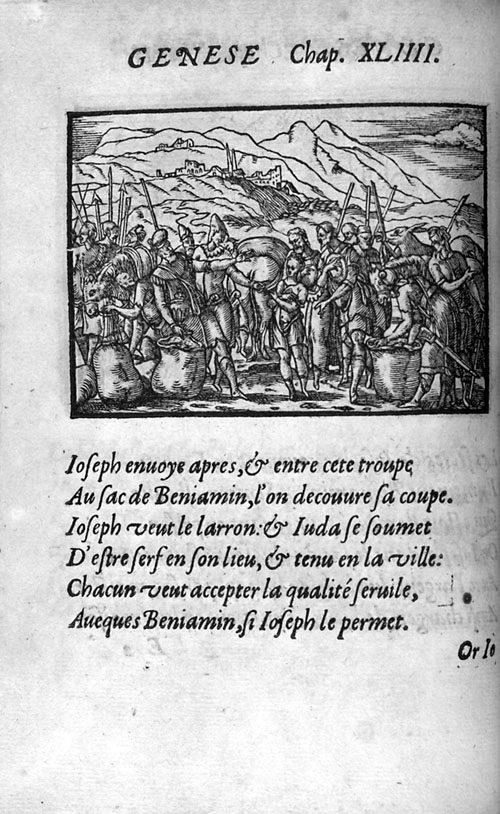 GENESE Chap. XLIIII.
Ioseph enuoye apres, & entre cete troupe
Au sac de Beniamin, l'on decouure sa coupe.
Ioseph veut le larron: & Iuda se soumet
D'eſtre ſerf en ſon lieu, & tenu en la ville:
Chacun veut accepter la qualité ſeruile,
Aueques Beniamin, ſi Ioſeph le permet.
Or Io